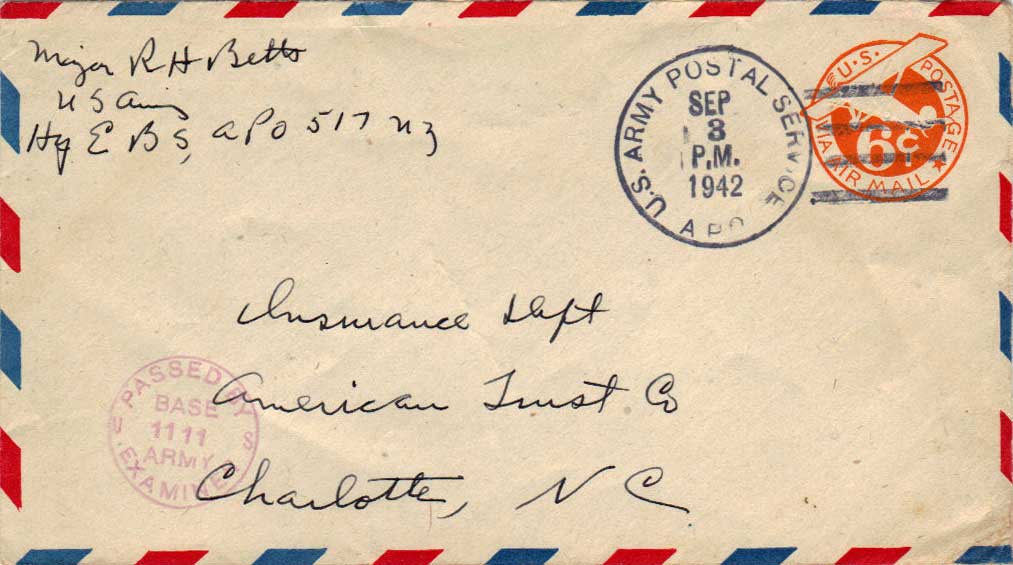 Major R H Betts
U S Army
Hq E B S, APO 517 NZ
U.S. ARMY POSTAL SERVICE
SEP
3
P.M.
1942
APO
U.S. POSTAGE
6¢
VIA AIR MAIL
Insurance Dept
American Trust Co
Charlotte, N C
PASSED BY
BASE
1111
ARMY
EXAMINER